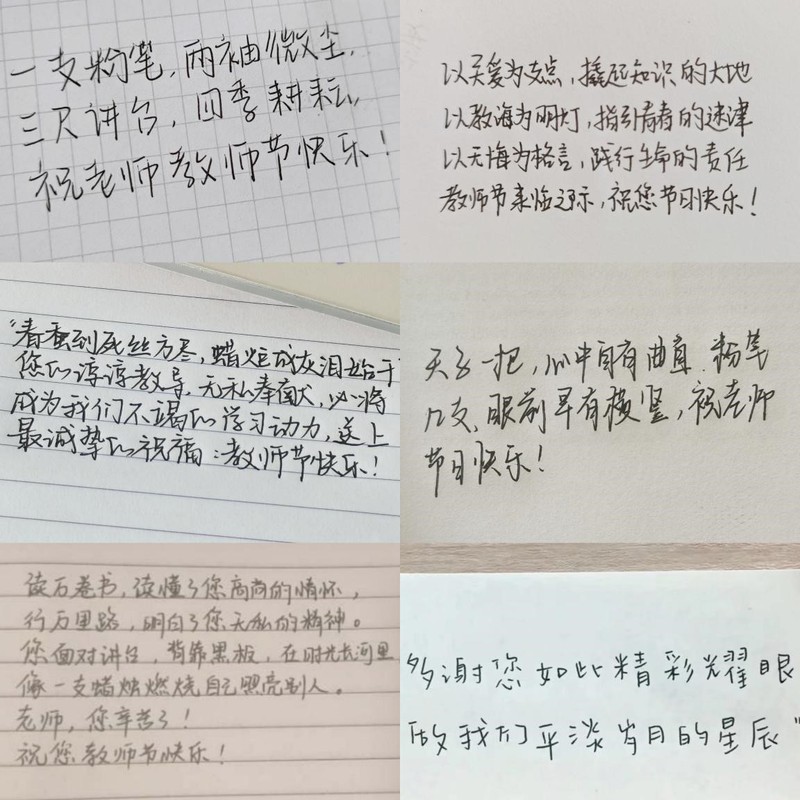 一支粉笔，两袖微尘，
三尺讲台，四季耕耘，
祝老师教师节快乐！
以关爱为支点，撬起知识的大地
以教海为明灯，指引青春的迷津
以无悔为格言，践行生命的责任
教师节来临之际，祝您节日快乐！
“春蚕到死丝方尽，蜡炬成灰泪始干”
您的谆谆教导，无私奉献，必将
成为我们不竭的学习动力，送上
最诚挚的祝福：教师节快乐！
戒尺一把，心中自有曲直，粉笔
几支，眼前早有横竖，祝老师
节日快乐！
读万卷书，读懂了您高尚的情怀，
行万里路，明白了您无私的精神。
您面对讲台，背靠黑板，在时光长河里
像一支蜡烛燃烧自己照亮别人。
老师，您辛苦了！
祝您教师节快乐！
多谢您如此精彩耀眼
做我们平淡岁月的星辰”